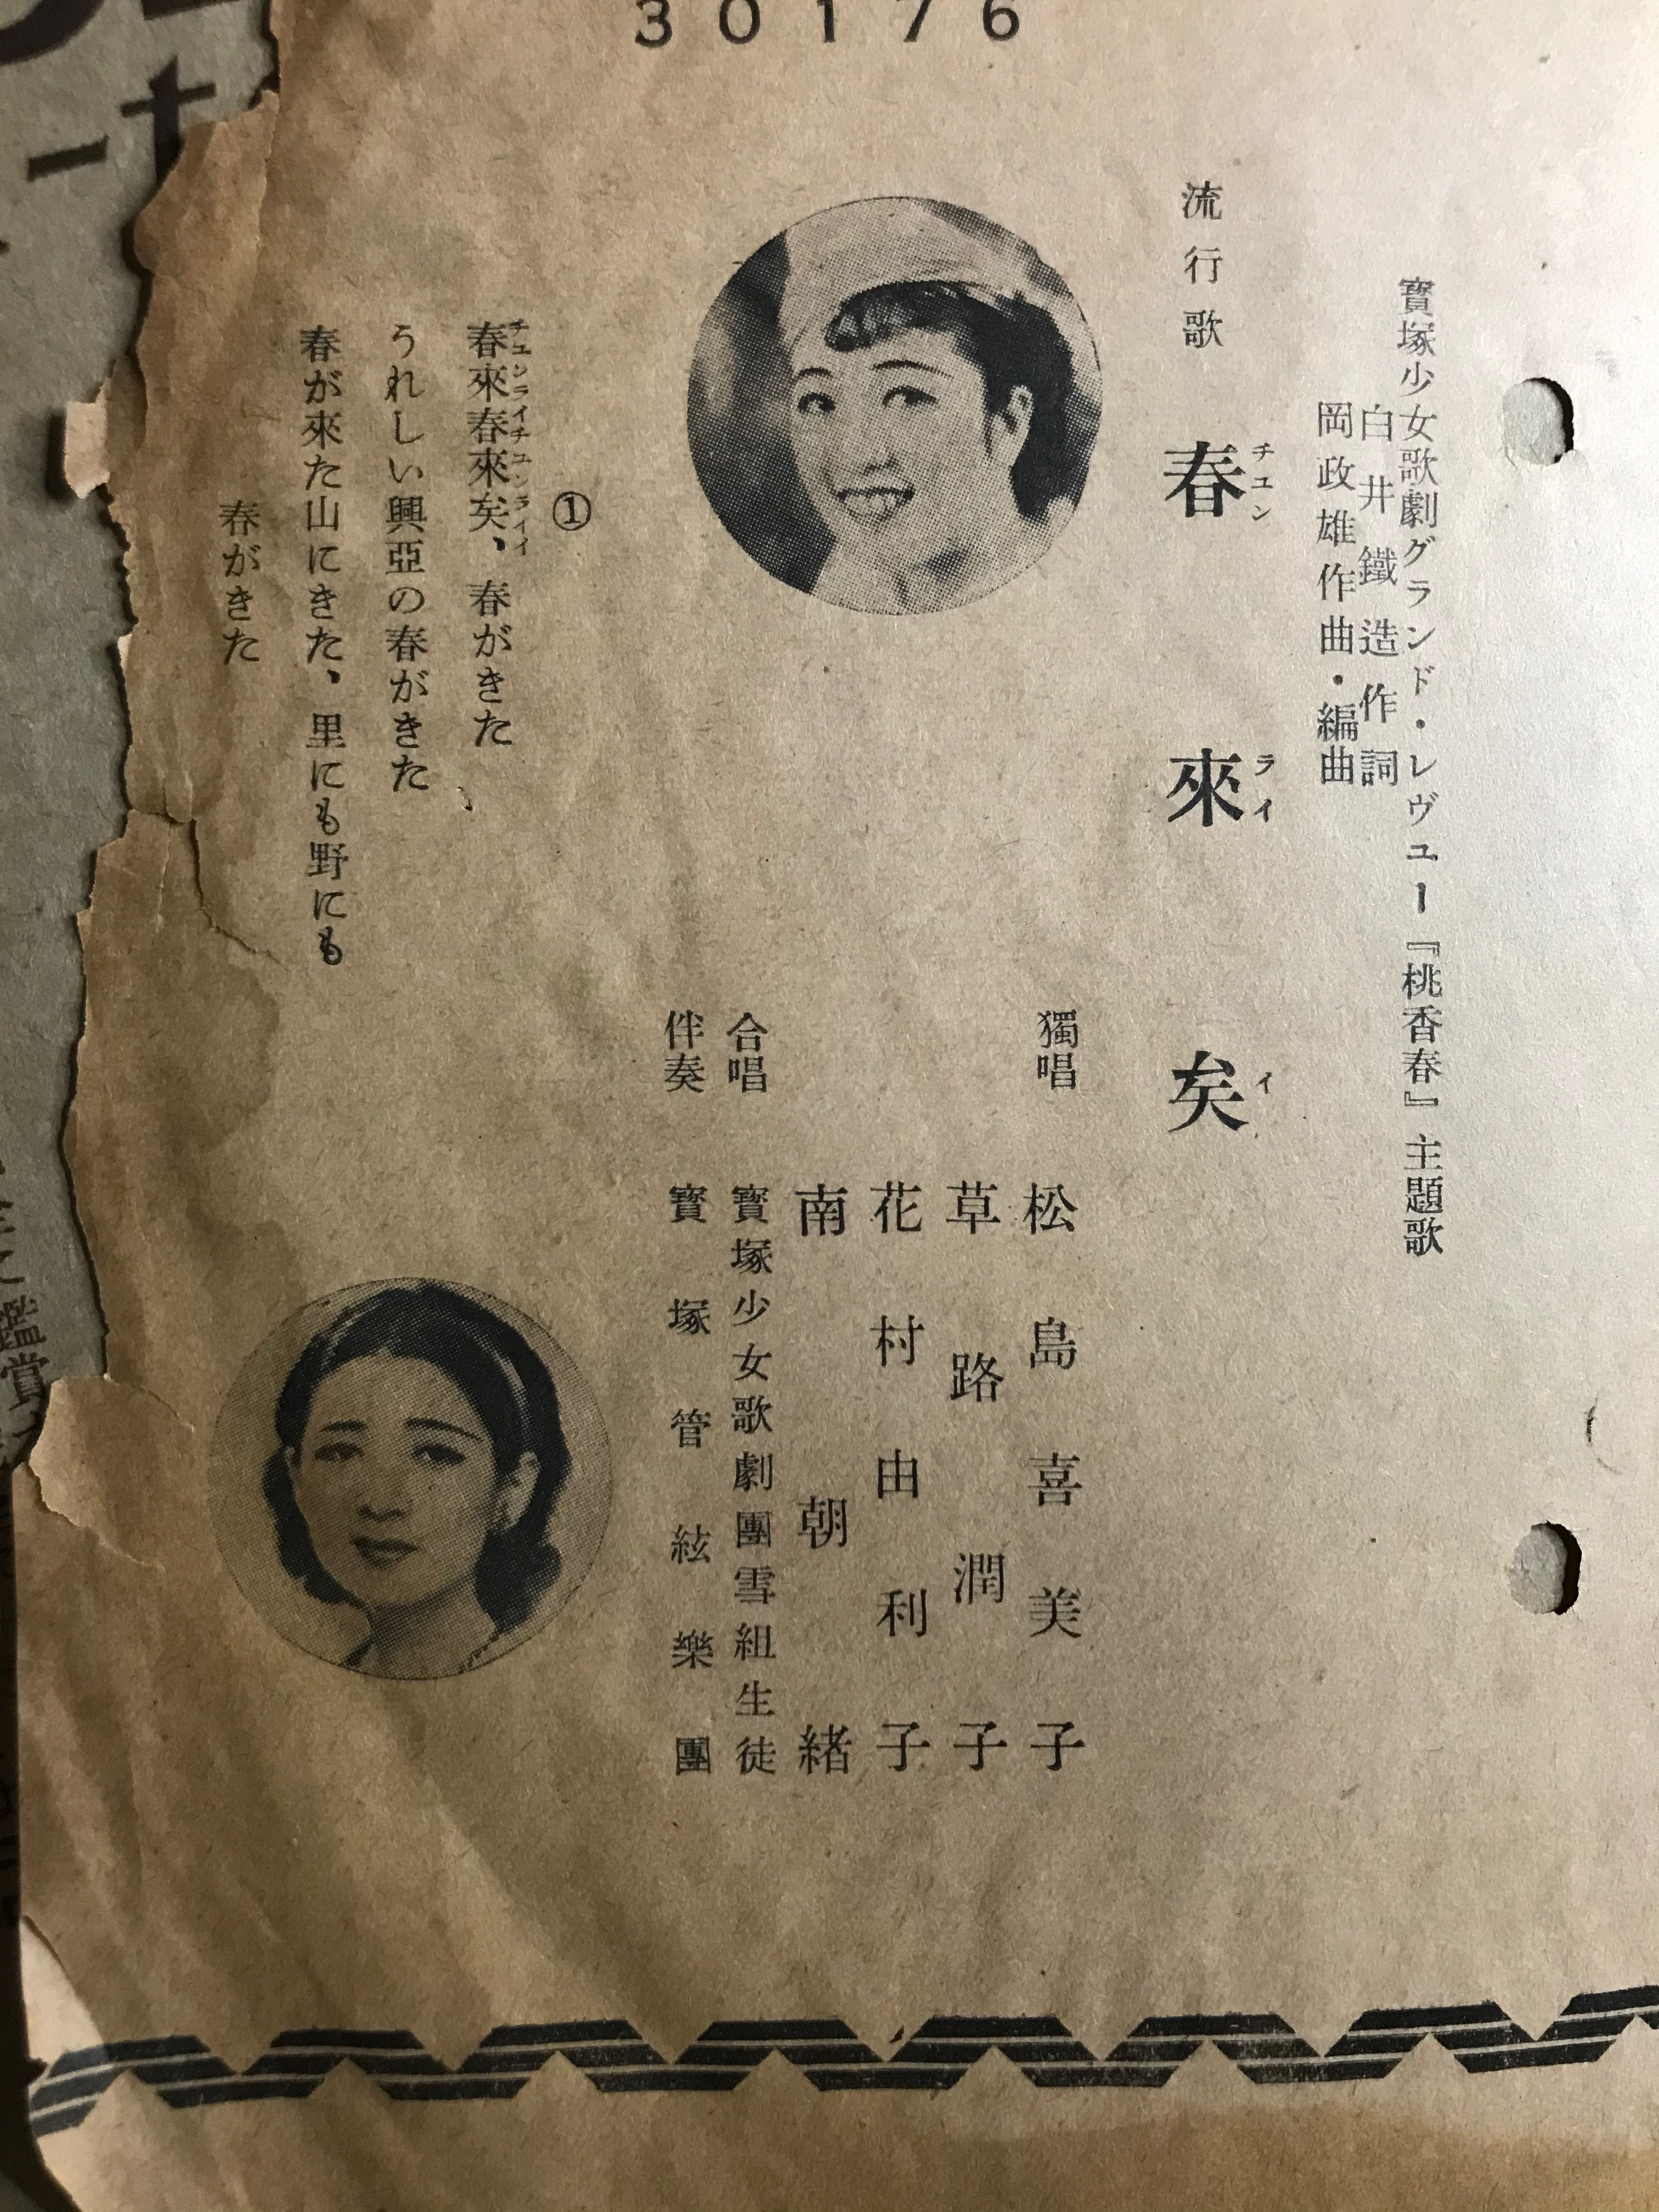 30176
寳塚少女歌劇グランド・レヴュー『桃香春』主題歌
白井鐵造作詞
岡政雄作曲・編曲
流行歌 春來矣
チユン ライ イ
獨唱 松島喜美子
草路潤子
花村由利子
南朝緒
合唱 寳塚少女歌劇團雪組生徒
伴奏 寳塚管絃樂團
①
春來春來矣、春がきた
チユンライチユンライイ
うれしい興亞の春がきた
春が來た山にきた、里にも野にも
春がきた
鑑賞